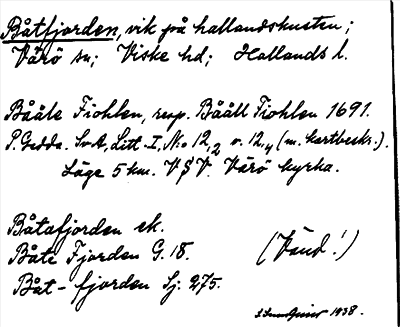 Båtfjorden, vik på hallandskusten;
Värö sn; Viske hd; Hallands l.
Bååle Fiohlen, resp. Bååll Fiohlen 1691.
P. Gedda. SvA, Litt. I, No 12,2 o. 12,4 (m. kartbeskr.).
Läge 5 km. V§V. Värö kyrka.
Båtafjorden ek.
Båte Fjorden G. 18. (Vänd!)
Båt-fjorden Sj. 275.
1938.